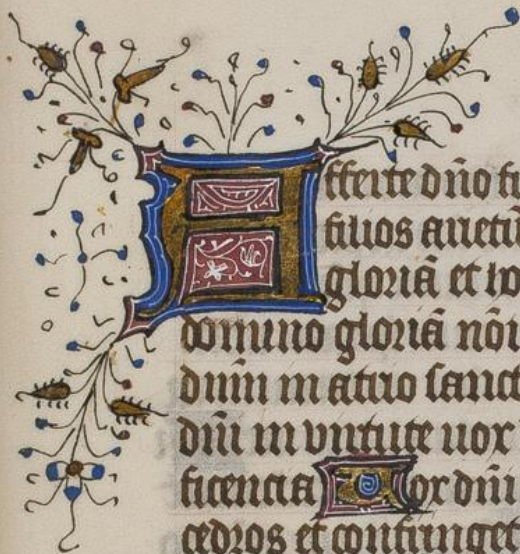 Afferte dño fi
filios arietū
gloriā et ho
domino gloriā nōi
dnm̄ in atrio sanct
dñi in virtute uox
ficencia Vox dñi
cedros et confringet